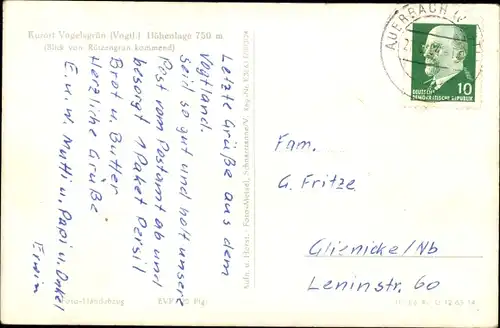 Kurort Vogelsgrün (Vogtl.) Höhenlage 750 m
(Blick von Rützengrün kommend)
Letzte Grüße aus dem
Vogtland.
Seid so gut und holt unsere
Post vom Postamt ab und
besorgt 1 Paket Persil
Brot u. Butter
Herzliche Grüße
E. u. W. Mutti u. Papi u. Onkel
Erwin
Foto-Handabzug EVP Pfg.
Aufn. u. Herst.: Foto-Wetzel, Schnarrtanne/V.
AUERBACH
10
DEUTSCHE
DEMOKRATISCHE REPUBLIK
Fam.
G. Fritze
Glienicke/Nb
Leninstr. 60